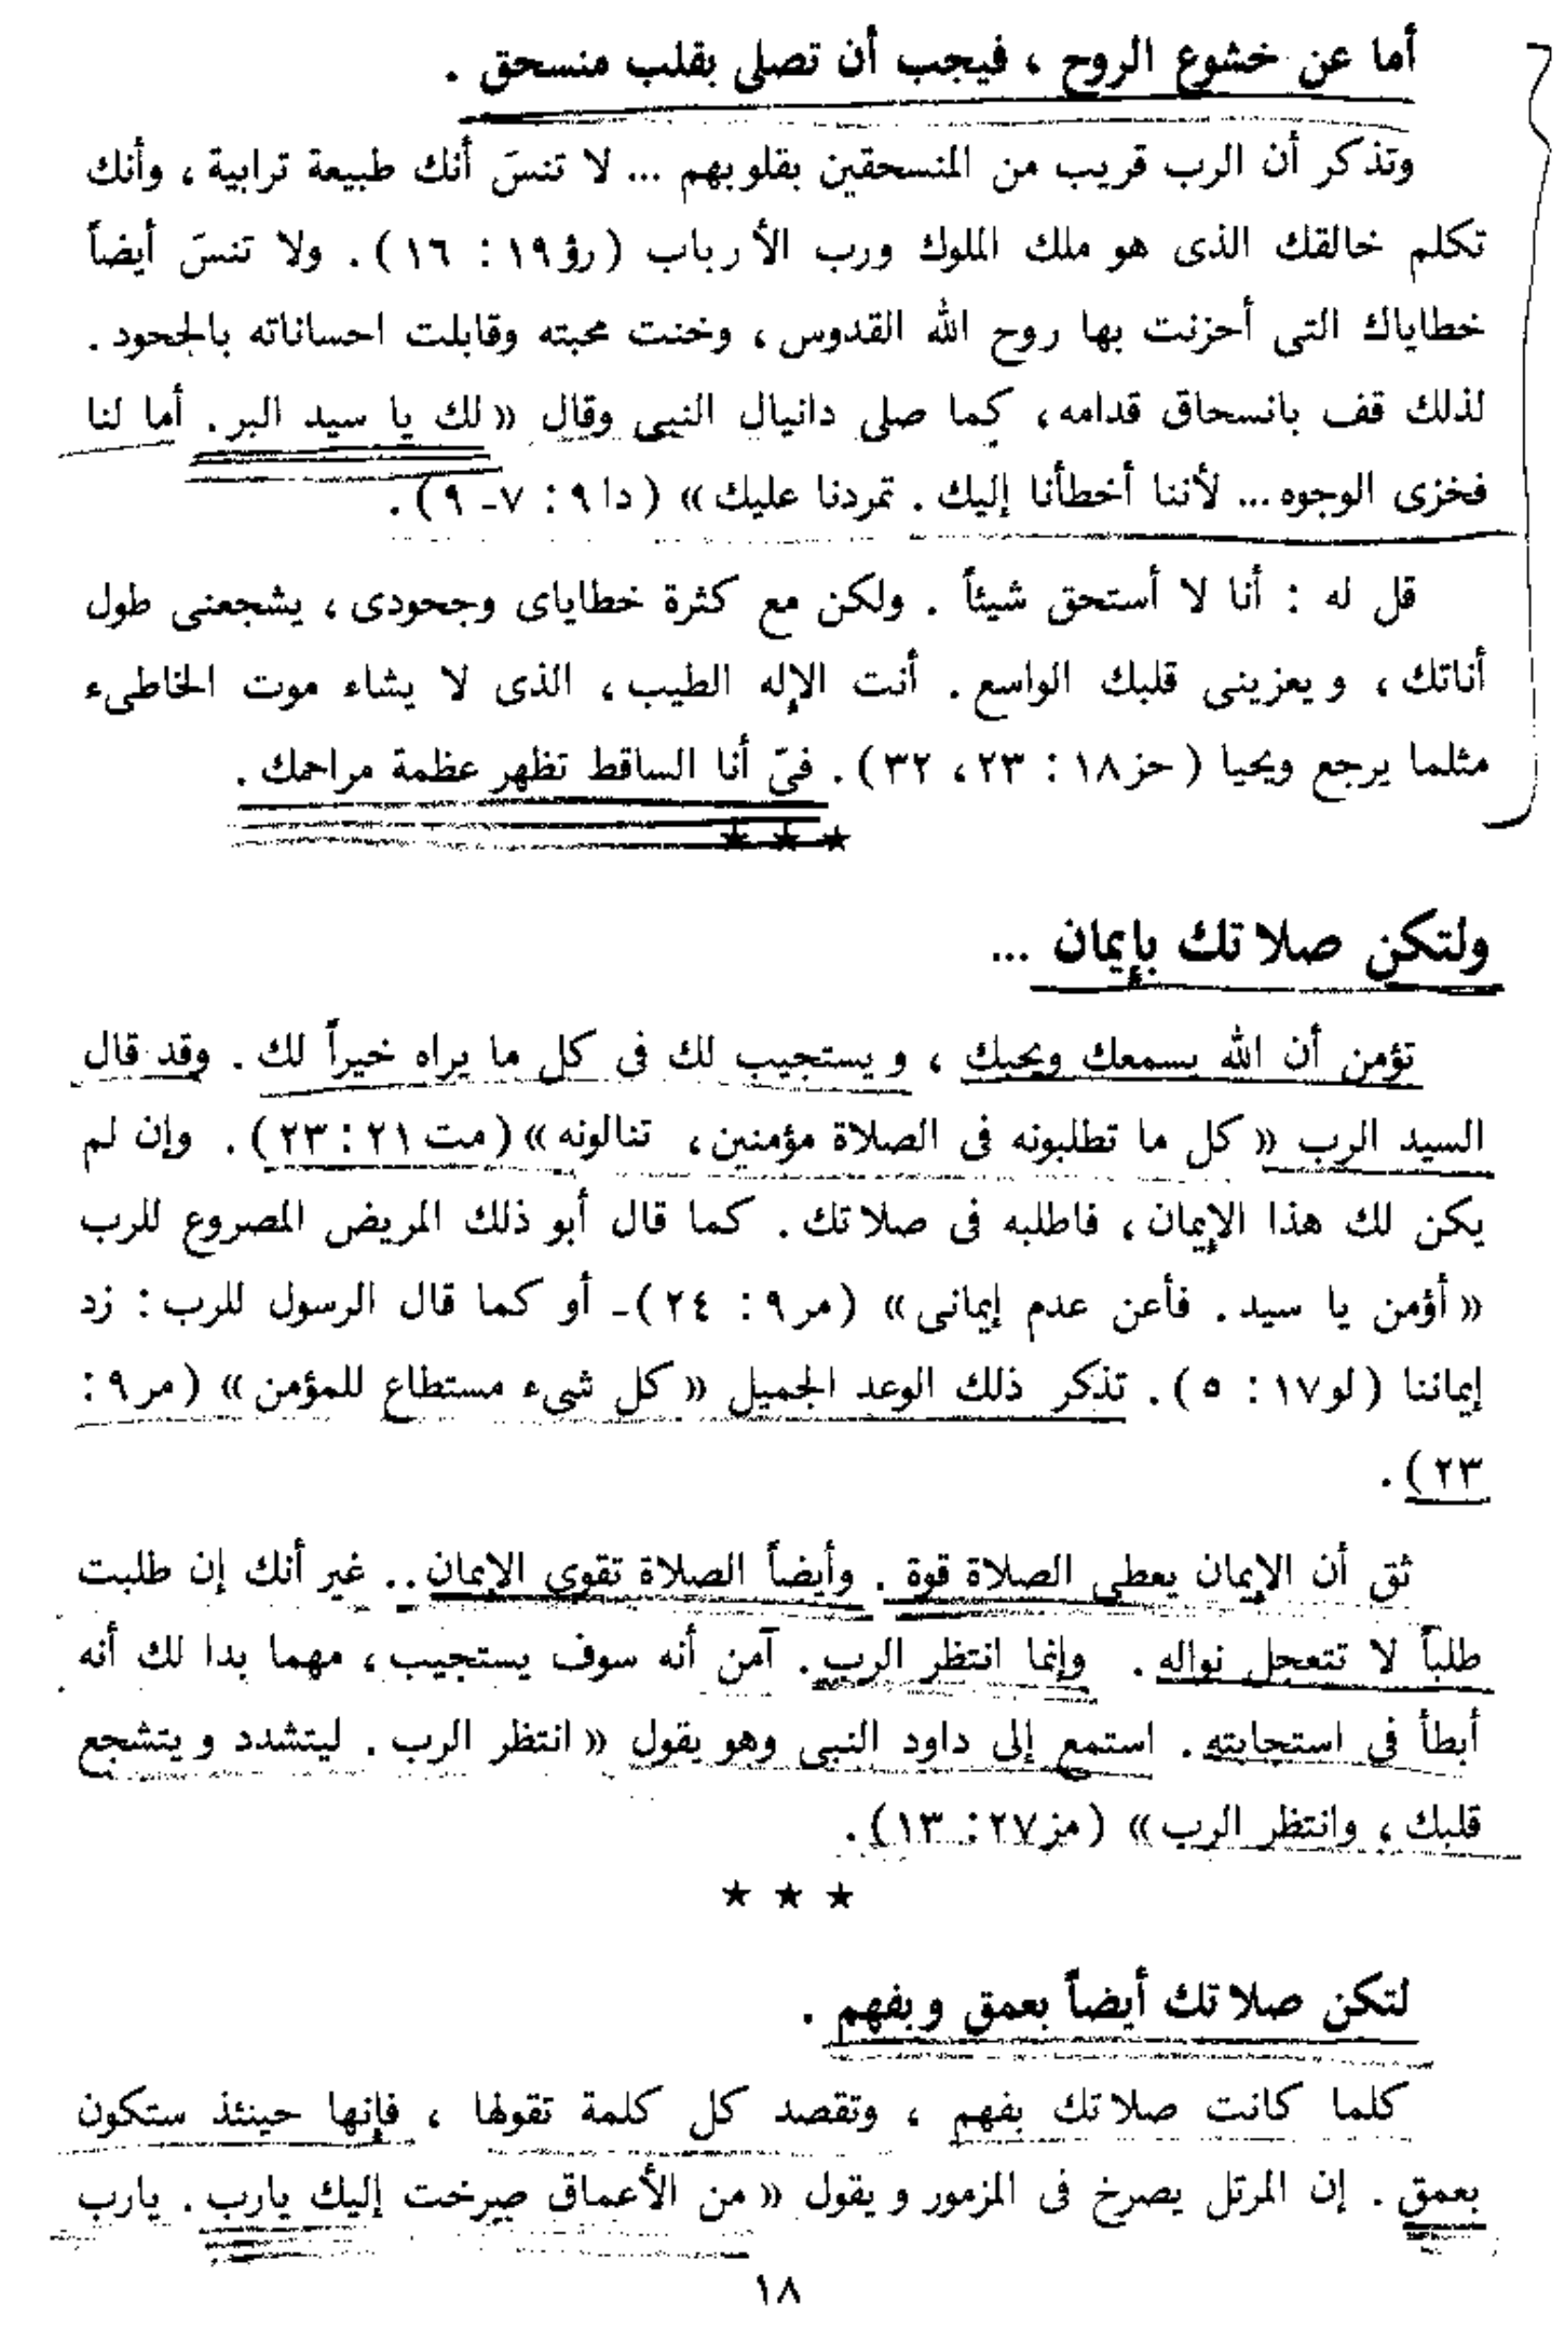 أما عن خشوع الروح ، فيجب أن تصلى بقلب منسحق .
وتذكر أن الرب قريب من المنسحقين بقلوبهم ... لا تنسَ أنك طبيعة ترابية ، وأنك
تكلم خالقك الذى هو ملك الملوك ورب الأرباب (رؤ١٩ : ١٦) . ولا تنسَ أيضاً
خطاياك التى أحزنت بها روح الله القدوس ، وخنت محبته وقابلت احساناته بالجحود .
لذلك قف بانسحاق قدامه ، كما صلى دانيال النبى وقال « لك يا سيد البر . أما لنا
فخزى الوجوه ... لأننا أخطأنا إليك . تمردنا عليك » (دا٩ : ٧ـ ٩) .
قل له : أنا لا أستحق شيئاً . ولكن مع كثرة خطاياى وجحودى ، يشجعنى طول
أناتك ، ويعزينى قلبك الواسع . أنت الإله الطيب ، الذى لا يشاء موت الخاطىء
مثلما يرجع ويحيا (حز١٨ : ٢٣ ، ٣٢) . فىّ أنا الساقط تظهر عظمة مراحمك .
★ ★ ★
ولتكن صلاتك بإيمان ...
تؤمن أن الله يسمعك ويحبك ، ويستجيب لك فى كل ما يراه خيراً لك . وقد قال
السيد الرب « كل ما تطلبونه فى الصلاة مؤمنين ، تنالونه » (مت٢١ : ٢٣) . وإن لم
يكن لك هذا الإيمان ، فاطلبه فى صلاتك . كما قال أبو ذلك المريض المصروع للرب
« أؤمن يا سيد . فأعن عدم إيمانى » (مر٩ : ٢٤)ـ أو كما قال الرسول للرب : زد
إيماننا (لو١٧ : ٥) . تذكر ذلك الوعد الجميل « كل شىء مستطاع للمؤمن » (مر٩ :
٢٣) .
ثق أن الإيمان يعطى الصلاة قوة . وأيضاً الصلاة تقوى الإيمان .. غير أنك إن طلبت
طلباً لا تتعجل نواله . وإنما انتظر الرب . آمن أنه سوف يستجيب ، مهما بدا لك أنه
أبطأ فى استجابته . استمع إلى داود النبى وهو يقول « انتظر الرب . ليتشدد ويتشجع
قلبك ، وانتظر الرب » (مز٢٧ : ١٣) .
★ ★ ★
لتكن صلاتك أيضاً بعمق وبفهم .
كلما كانت صلاتك بفهم ، وتقصد كل كلمة تقولها ، فإنها حينئذ ستكون
بعمق . إن المرتل يصرخ فى المزمور ويقول « من الأعماق صرخت إليك يارب . يارب
١٨